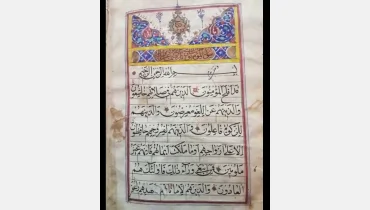 بسم الله الرحمن الرحيم
قد افلح المؤمنون الذين هم في صلاتهم خاشعون
والذين هم عن اللغو معرضون والذين هم
للزكوة فاعلون والذين هم لفروجهم حافظون
الا على ازواجهم او ما ملكت ايمانهم فانهم غير
ملومين فمن ابتغى وراء ذلك فاولئك هم
العادون والذين هم لاماناتهم وعهدهم